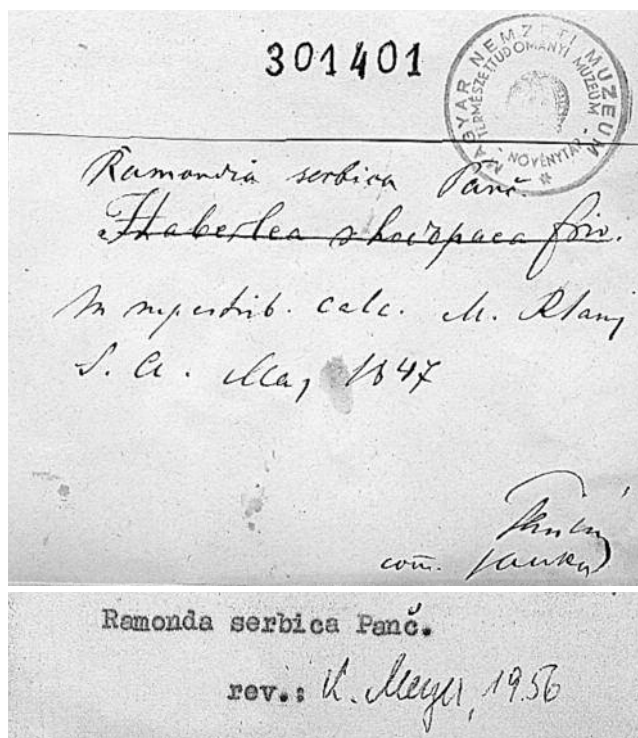 301401
MAGYAR NEMZETI MUZEUM
TERMÉSZETTUDOMÁNYI MÚZEUM
NÖVÉNYTÁR
Ramondia serbica Panč.
Haberlea rhodopaea friv.
In rupestrib. calc. M. Rtanj
S. A. May 1847
com. Janka
Ramonda serbica Panč.
rev.: K. Meyer, 1956